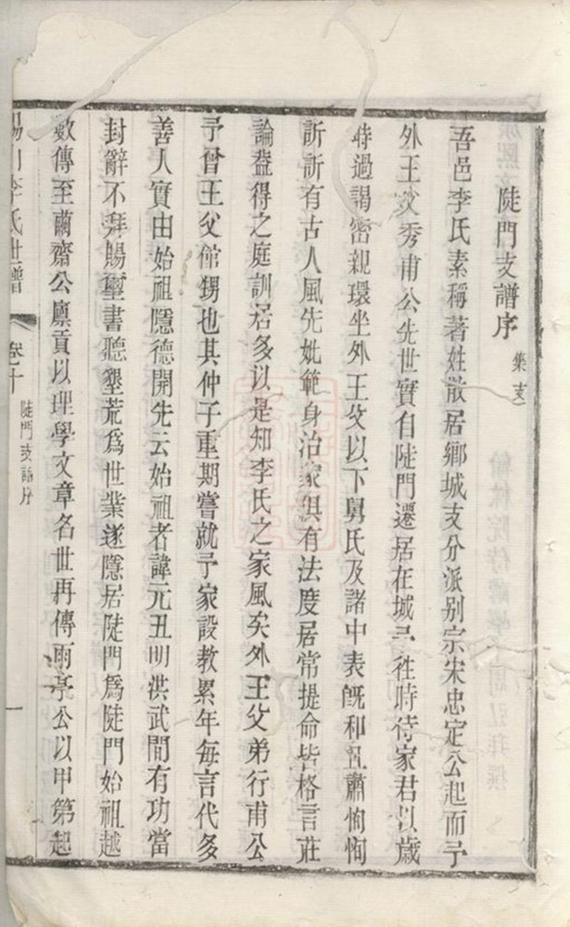 陡門支譜序 集支
吾邑李氏素稱著姓散居鄉城支分派别宗宋忠定公起而予
外王父秀甫公先世實自陡門遷居在城予徃時侍家君以歲
時過謁密親環坐外王父以下舅氏及諸中表既和且肅恂恂
訢訢有古人風先妣範身治家俱有法度居常提命皆格言莊
論葢得之庭訓居多以是知李氏之家風矣外王父弟行甫公
予曾王父館甥也其仲子重期嘗就予家設教累年每言代多
善人實由始祖隱德開先云始祖者諱元丑明洪武間有功當
封辭不拜賜璽書聽墾荒爲世業遂隱居陡門爲陡門始祖越
數傳至繭齋公廩貢以理學文章名世再傳雨亭公以甲第起
李氏世譜 卷十 陡門支譜序 一